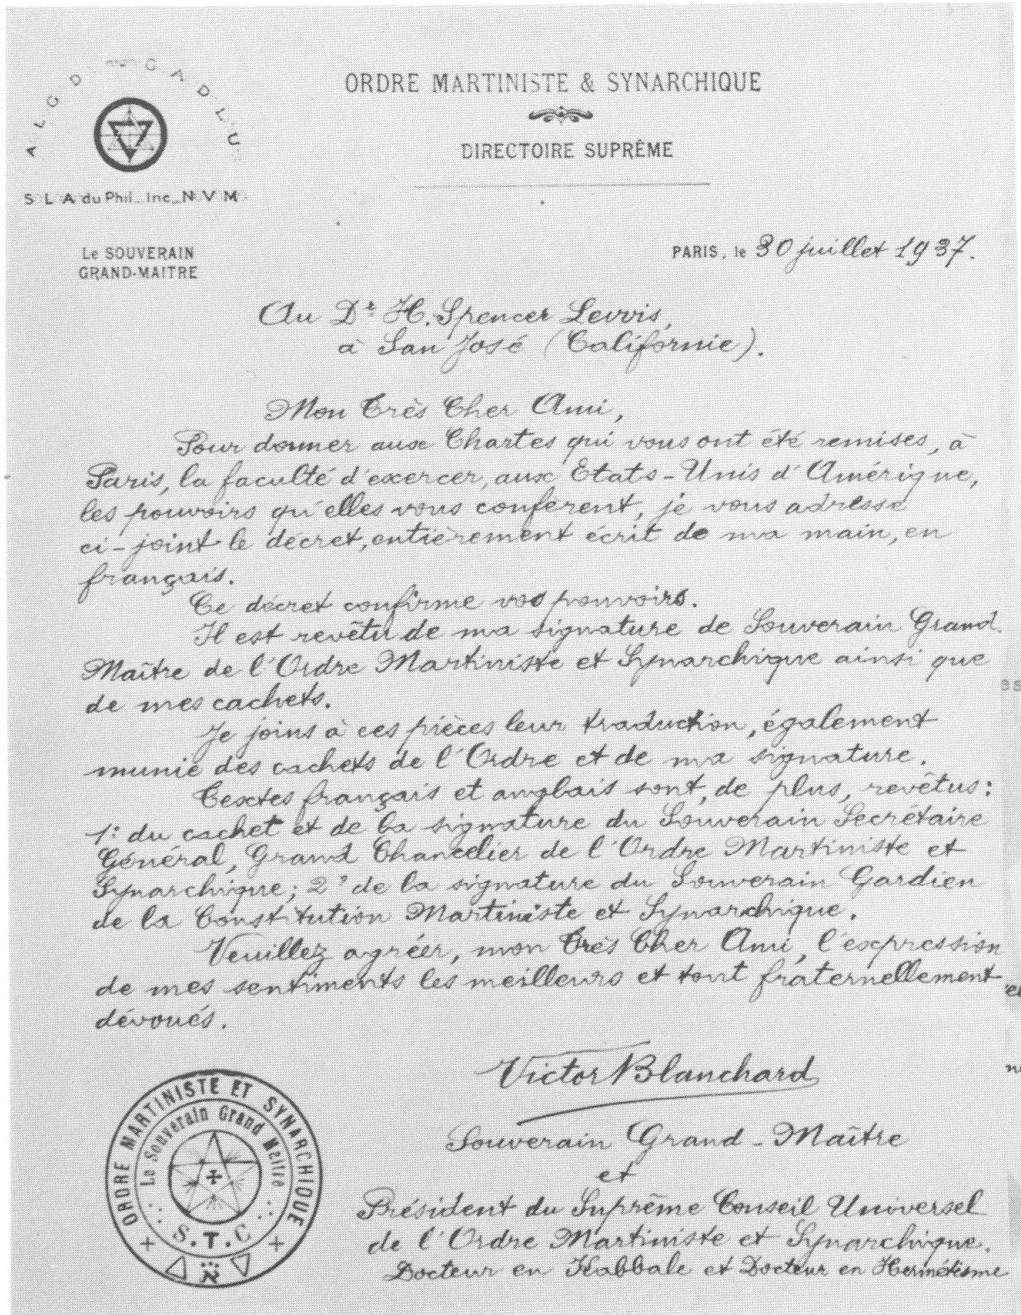 A L G D G A D L U
ORDRE MARTINISTE & SYNARCHIQUE
DIRECTOIRE SUPRÊME
S L A du Phil. Inc. N V M
Le SOUVERAIN
GRAND-MAITRE
PARIS, le 30 juillet 1937.
Au Dr H. Spencer Lewis,
à San José (Californie).
Mon Très Cher Ami,
Pour donner aux Chartes qui vous ont été remises, à
Paris, la faculté d'exercer, aux Etats-Unis d'Amérique,
les pouvoirs qu'elles vous confèrent, je vous adresse
ci-joint le décret, entièrement écrit de ma main, en
français.
Ce décret confirme vos pouvoirs.
Il est revêtu de ma signature de Souverain Grand
Maître de l'Ordre Martiniste et Synarchique ainsi que
de mes cachets.
Je joins à ces pièces leur traduction, également
munie des cachets de l'Ordre et de ma signature.
Textes français et anglais sont, de plus, revêtus:
1° du cachet et de la signature du Souverain Secrétaire
Général, Grand Chancelier de l'Ordre Martiniste et
Synarchique; 2° de la signature du Souverain Gardien
de la Constitution Martiniste et Synarchique.
Veuillez agréer, mon Très Cher Ami, l'expression
de mes sentiments les meilleurs et tout fraternellement
dévoués.
Victor Blanchard
Souverain Grand-Maître
et
Président du Suprême Conseil Universel
de l'Ordre Martiniste et Synarchique.
Docteur en Kabbale et Docteur en Hermétisme
ORDRE MARTINISTE ET SYNARCHIQUE
Le Souverain Grand Maitre
S.T.C